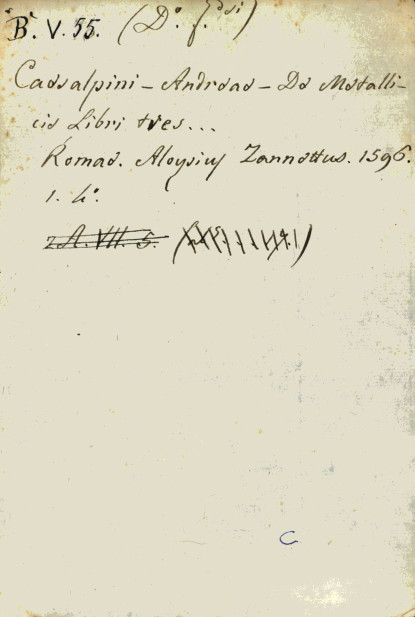 B. V. 55. (D.° f.
Caesalpini – Andreae – De Metalli-
cis Libri tres...
Romae. Aloysius Zannettus. 1596.
1. 4°.
2 A. VII. 5.
C